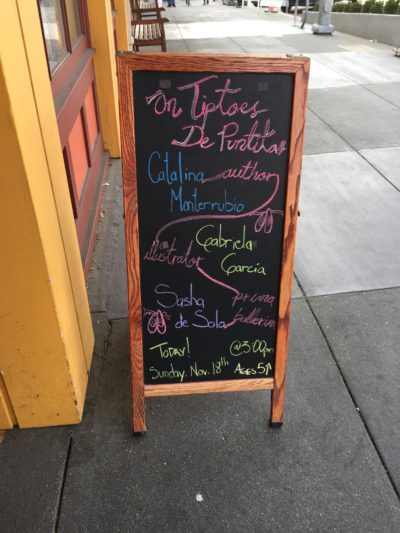 On Tiptoes
De Puntitas
Catalina author
Monterrubio
Gabriela
illustrator Garcia
Sasha prima
de Sola ballerina
Today! @3:00pm
Sunday. Nov. 18th Ages 5↑